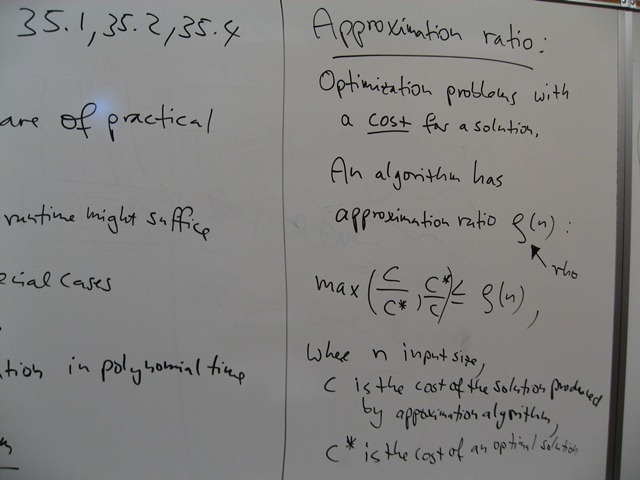 35.1, 35.2, 35.4
are of practical
runtime might suffice
ecial cases
tion in polynomial time
Approximation ratio:
Optimization problems with
a cost for a solution.
An algorithm has
approximation ratio ρ(n):
rho
max(C/C*, C*/C) ≤ ρ(n),
where n input size,
C is the cost of the solution produced
by approximation algorithm,
C* is the cost of an optimal solution